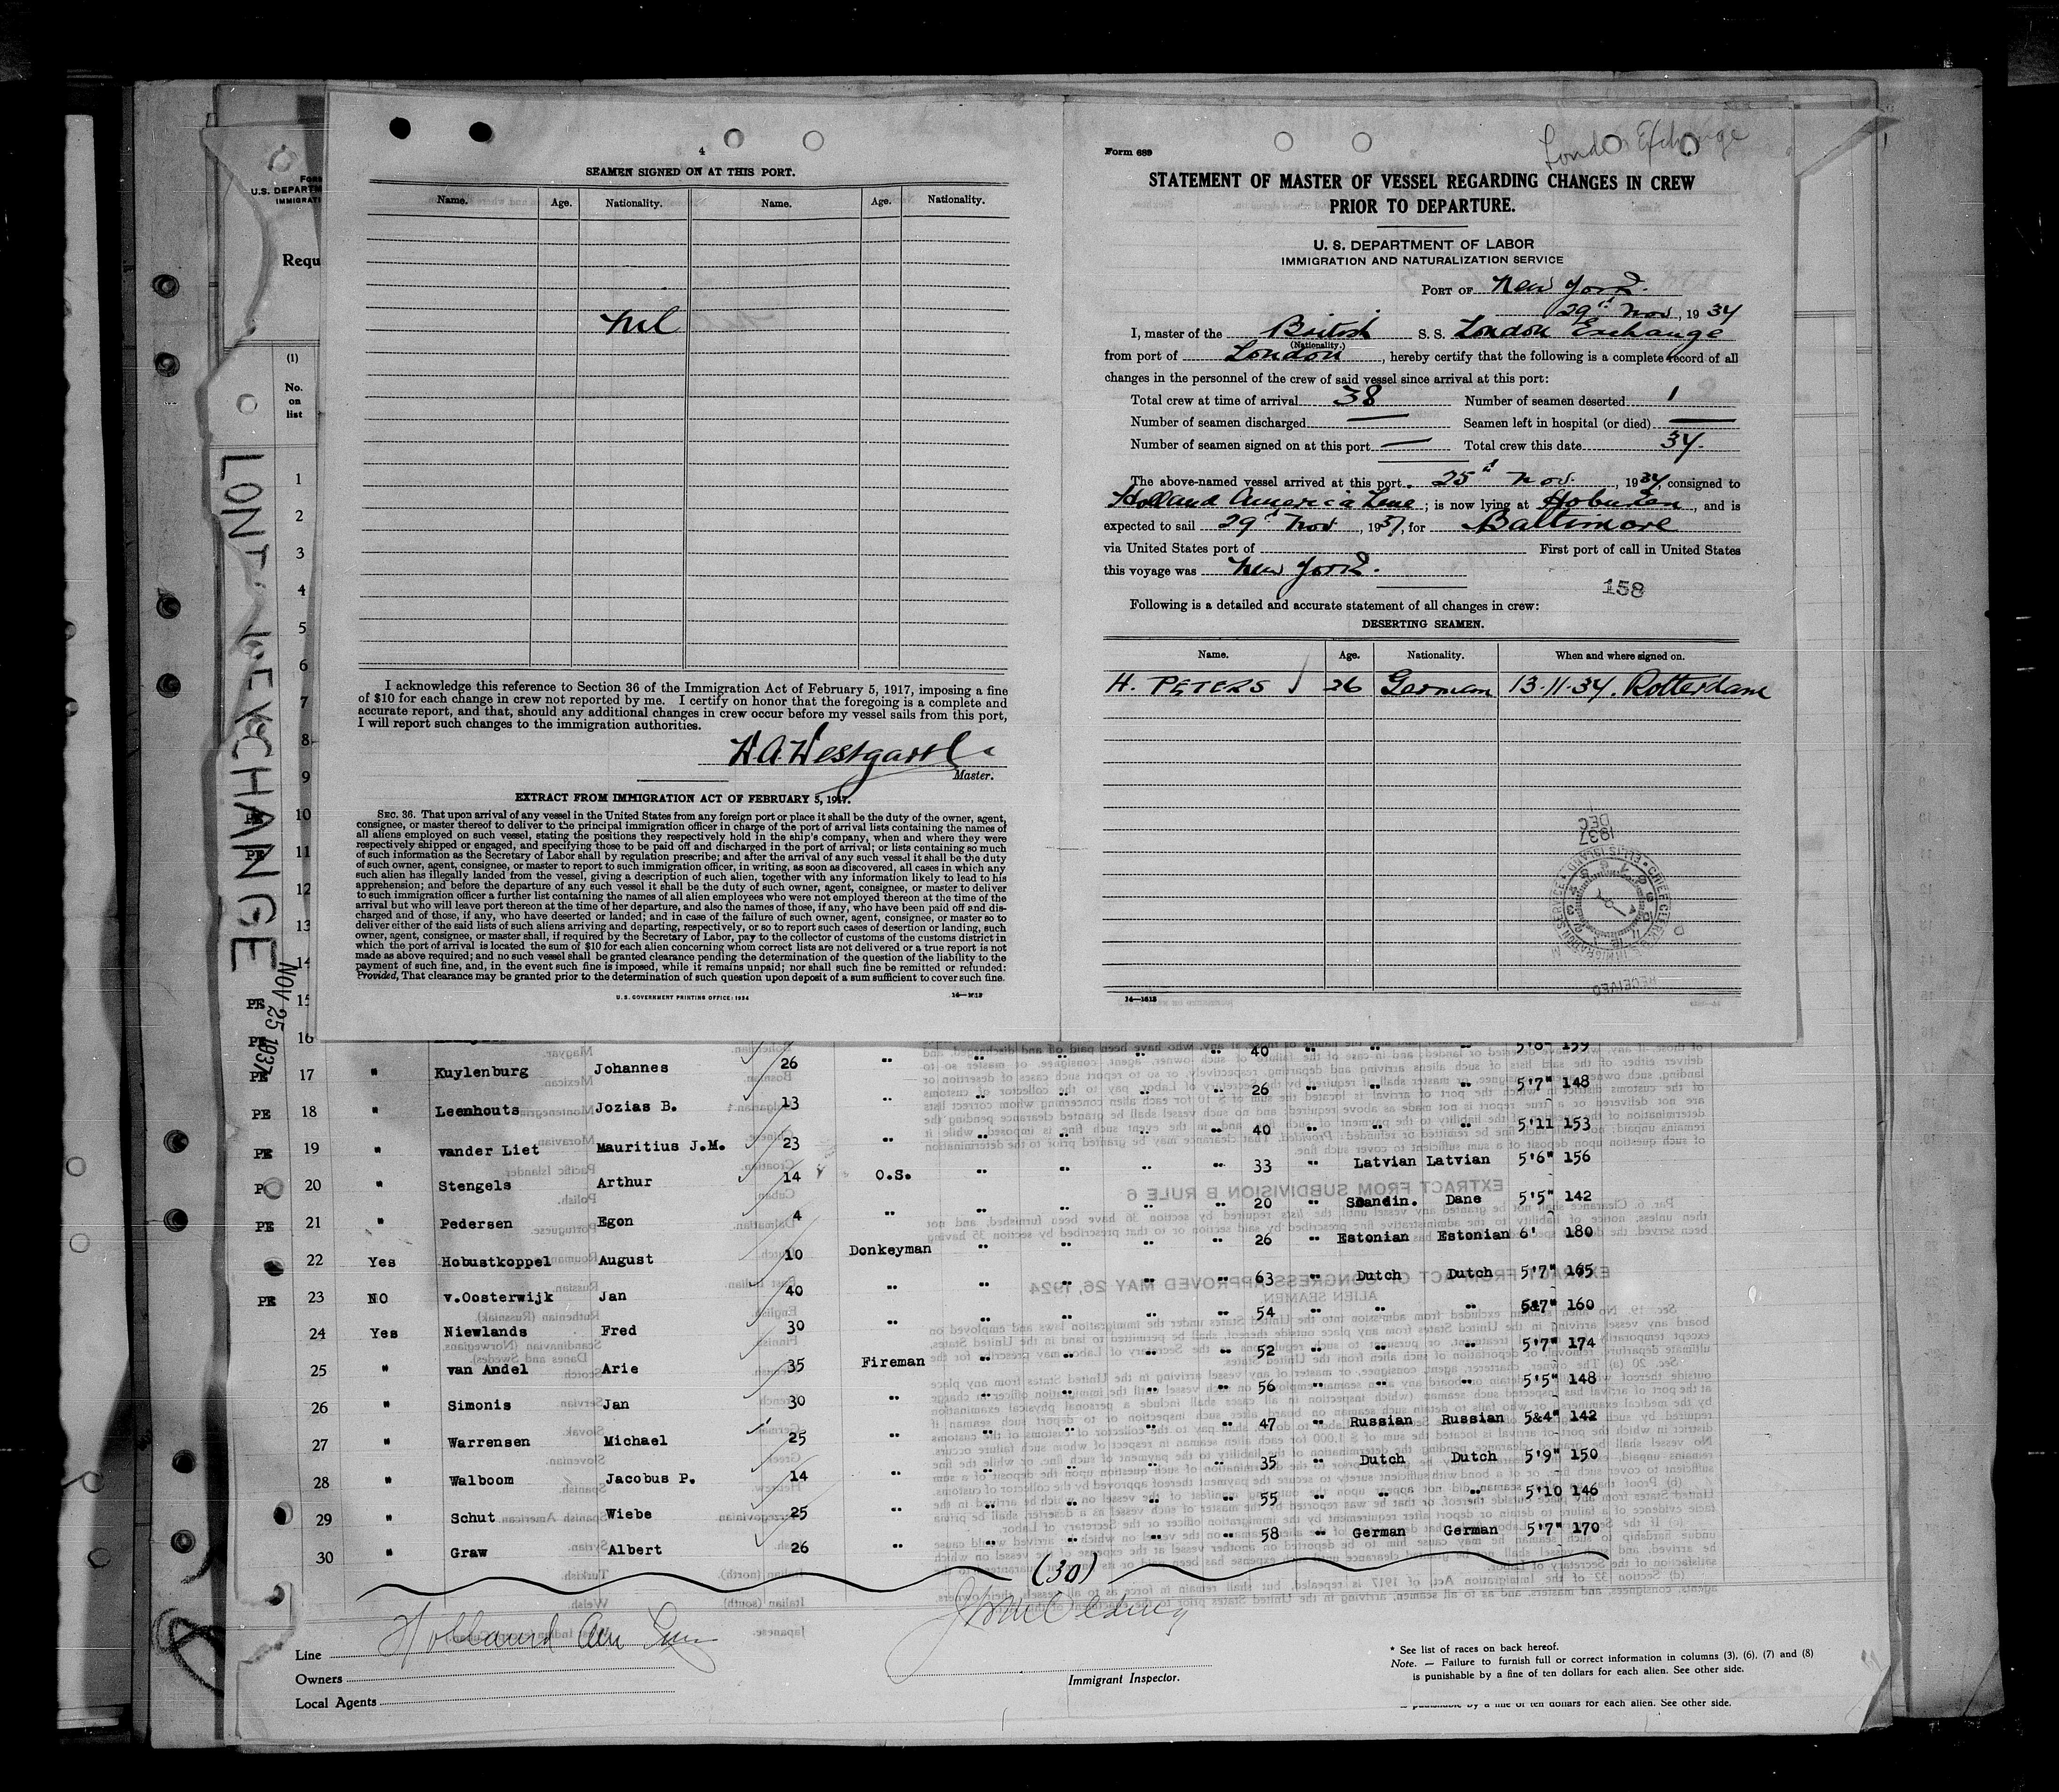 4
SEAMEN SIGNED ON AT THIS PORT.
Name. Age. Nationality. Name. Age. Nationality.
Nil
I acknowledge this reference to Section 36 of the Immigration Act of February 5, 1917, imposing a fine
of $10 for each change in crew not reported by me. I certify on honor that the foregoing is a complete and
accurate report, and that, should any additional changes in crew occur before my vessel sails from this port,
I will report such changes to the immigration authorities.
W.A. Westgarth
Master.
EXTRACT FROM IMMIGRATION ACT OF FEBRUARY 5, 1917.
SEC. 36. That upon arrival of any vessel in the United States from any foreign port or place it shall be the duty of the owner, agent,
consignee, or master thereof to deliver to the principal immigration officer in charge of the port of arrival lists containing the names of
all aliens employed on such vessel, stating the positions they respectively hold in the ship's company, when and where they were
respectively shipped or engaged, and specifying those to be paid off and discharged in the port of arrival; or lists containing so much
of such information as the Secretary of Labor shall by regulation prescribe; and after the arrival of any such vessel it shall be the duty
of such owner, agent, consignee, or master to report to such immigration officer, in writing, as soon as discovered, all cases in which any
such alien has illegally landed from the vessel, giving a description of such alien, together with any information likely to lead to his
apprehension; and before the departure of any such vessel it shall be the duty of such owner, agent, consignee, or master to deliver
to such immigration officer a further list containing the names of all alien employees who were not employed thereon at the time of the
arrival but who will leave port thereon at the time of her departure, and also the names of those, if any, who have been paid off and dis-
charged and of those, if any, who have deserted or landed; and in case of the failure of such owner, agent, consignee, or master so to
deliver either of the said lists of such aliens arriving and departing, respectively, or so to report such cases of desertion or landing, such
owner, agent, consignee, or master shall, if required by the Secretary of Labor, pay to the collector of customs of the customs district in
which the port of arrival is located the sum of $10 for each alien concerning whom correct lists are not delivered or a true report is not
made as above required; and no such vessel shall be granted clearance pending the determination of the question of the liability to the
payment of such fine, and, in the event such fine is imposed, while it remains unpaid; nor shall such fine be remitted or refunded:
Provided, That clearance may be granted prior to the determination of such question upon deposit of a sum sufficient to cover such fine.
U.S. GOVERNMENT PRINTING OFFICE: 1934
Form 689
London Exchange
STATEMENT OF MASTER OF VESSEL REGARDING CHANGES IN CREW
PRIOR TO DEPARTURE.
U. S. DEPARTMENT OF LABOR
IMMIGRATION AND NATURALIZATION SERVICE
PORT OF New York.
29th Nov, 1937
I, master of the British S. S. London Exchange
(Nationality.)
from port of London, hereby certify that the following is a complete record of all
changes in the personnel of the crew of said vessel since arrival at this port:
Total crew at time of arrival 38 Number of seamen deserted 1
Number of seamen discharged — Seamen left in hospital (or died) —
Number of seamen signed on at this port — Total crew this date 37.
The above-named vessel arrived at this port 25th Nov., 1937, consigned to
Holland America Line; is now lying at Hoboken, and is
expected to sail 29th Nov, 1937, for Baltimore
via United States port of First port of call in United States
this voyage was New York.
158
Following is a detailed and accurate statement of all changes in crew:
DESERTING SEAMEN.
Name. Age. Nationality. When and where signed on.
H. PETERS 26 German 13.11.37. Rotterdam
14—1613
U.S. DEPARTM
IMMIGRATI
Requ
(1)
No.
on
list
LON EXCHANGE
NOV 25 1937
1
2
3
4
5
6
7
8
9
PE 10
PE 11
12
13
14
PE 15
PE 16 " 40 " " " 5'8" 159
PE 17 " Kuylenburg Johannes 26 " " " " " 26 " " " 5'7" 148
PE 18 " Leenhouts Jozias B. 13 " " " " " 40 " " " 5'11 153
PE 19 " vander Liet Mauritius J.M. 23 " " " " " 33 " Latvian Latvian 5'6" 156
20 " Stengels Arthur 14 O.S. " " " " 20 " Scandin. Dane 5'5" 142
PE 21 " Pedersen Egon 4 " " " " " 26 " Estonian Estonian 6' 180
22 Yes Hobustkoppel August 10 Donkeyman " " " " 63 " Dutch Dutch 5'7" 165
PE 23 NO v.Oosterwijk Jan 40 " " " " " 54 " " " 5&7" 160
24 Yes Niewlands Fred 30 " " " " " 52 " " " 5'7" 174
25 " van Andel Arie 35 Fireman " " " " 56 " " " 5'5" 148
26 " Simonis Jan 30 " " " " " 47 " Russian Russian 5&4" 142
27 " Warrensen Michael 25 " " " " " 35 " Dutch Dutch 5'9" 150
28 " Walboom Jacobus P. 14 " " " " " 55 " " " 5'10 146
29 " Schut Wiebe 25 " " " " " 58 " German German 5'7" 170
30 " Graw Albert 26 "
(30)
Line Holland Am Line
Owners
Local Agents
Immigrant Inspector.
* See list of races on back hereof.
Note. — Failure to furnish full or correct information in columns (3), (6), (7) and (8)
is punishable by a fine of ten dollars for each alien. See other side.
is punishable by a fine of ten dollars for each alien. See other side.